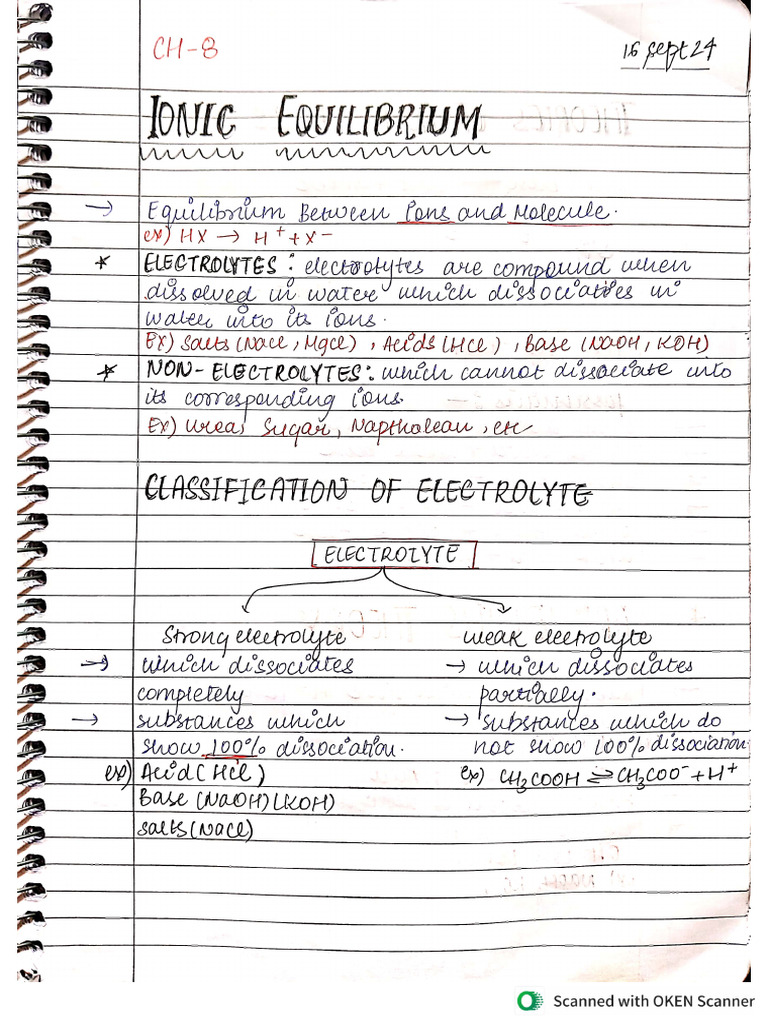 CH-8
16 sept 24
IONIC EQUILIBRIUM
→ Equilibrium Between Ions and Molecule.
ex) HX → H⁺ + X⁻
* ELECTROLYTES: electrolytes are compound when
dissolved in water which dissociaties in
water into its ions.
Ex) salts (Nacl, Mgcl), Acids (Hcl), Base (NaOH, KOH)
* NON-ELECTROLYTES: which cannot dissociate into
its corresponding ions.
Ex) Urea, Sugar, Naptholean, etc
CLASSIFICATION OF ELECTROLYTE
ELECTROLYTE
Strong electrolyte
→ which dissociates
completely
→ substances which
show 100% dissociation.
ex) Acid (Hcl)
Base (NaOH) (KOH)
salts (Nacl)
weak electrolyte
→ which dissociates
partially.
→ substances which do
not show 100% dissociation
ex) CH₃COOH ⇌ CH₃COO⁻ + H⁺
Scanned with OKEN Scanner